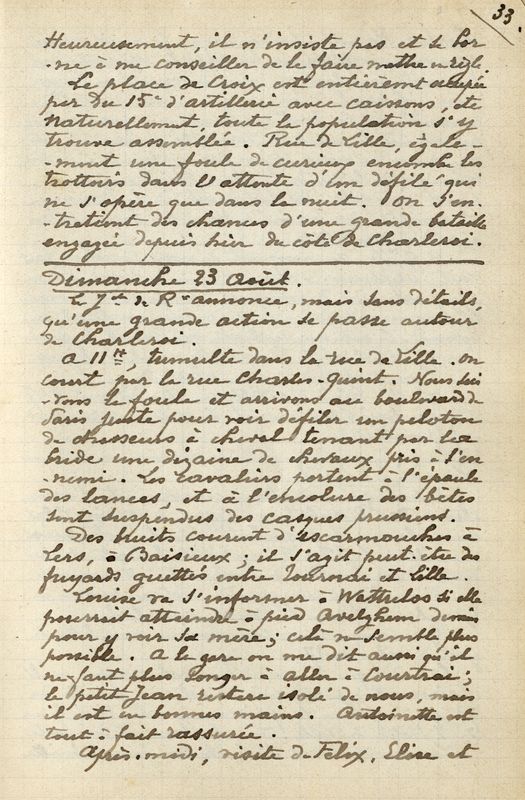 33.
Heureusement, il n'insiste pas et se bor-
-ne à me conseiller de le faire mettre en règle.
La place de Croix est entièremt occupée
par du 15e d'artillerie avec caissons, etc
Naturellement, toute la population s'y
trouve assemblée. Rue de Lille, égale-
-ment une foule de curieux encombre les
trottoirs dans l'attente d'un défilé qui
ne s'opère que dans la nuit. On s'en-
-tretient des chances d'une grande bataille
engagée depuis hier du côté de Charleroi.
Dimanche 23 Août.
Le Jal de Rx annonce, mais sans détails,
qu'une grande action se passe autour
de Charleroi.
A 11 hes, tumulte dans la rue de Lille. On
court par la rue Charles-Quint. Nous sui-
-vons la foule et arrivons au boulevard de
Paris juste pour voir défiler un peloton
de chasseurs à cheval tenant par la
bride une dizaine de chevaux pris à l'en-
-nemi. Les cavaliers portent à l'épaule
des lances, et à l'encolure des bêtes
sont suspendus des casques prussiens.
Des bruits courent d'escarmouches à
Lers, à Baisieux; il s'agit peut-être des
fuyards guettés entre Tournai et Lille.
Louise va s'informer à Wattrelos si elle
pourrait atteindre à pied Avelghem demain
pour y voir sa mère; celà ne semble plus
possible. A la gare on me dit aussi qu'il
ne faut plus songer à aller à Courtrai;
le petit Jean restera isolé de nous, mais
il est en bonnes mains. Antoinette est
tout à fait rassurée.
Après-midi, visite de Félix, Elise et